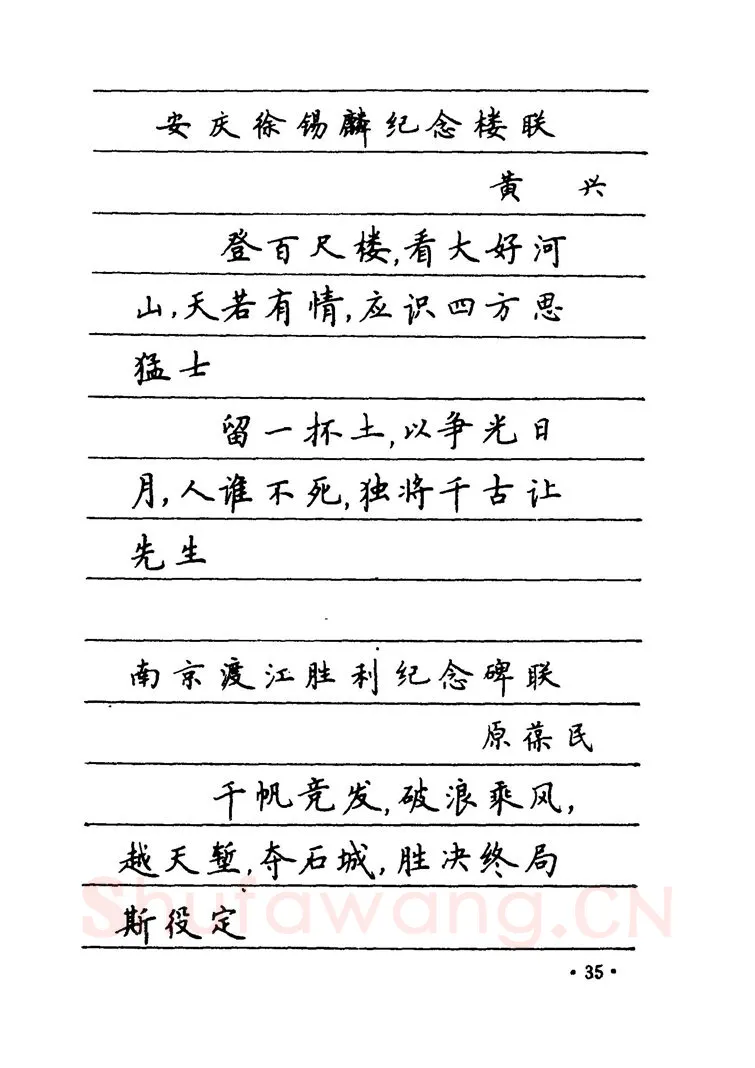 安庆徐锡麟纪念楼联
黄 兴
登百尺楼,看大好河
山,天若有情,应识四方思
猛士
留一抔土,以争光日
月,人谁不死,独将千古让
先生
南京渡江胜利纪念碑联
原葆民
千帆竞发,破浪乘风,
越天堑,夺石城,胜决终局
斯役定
Shufawang.CN
·35·